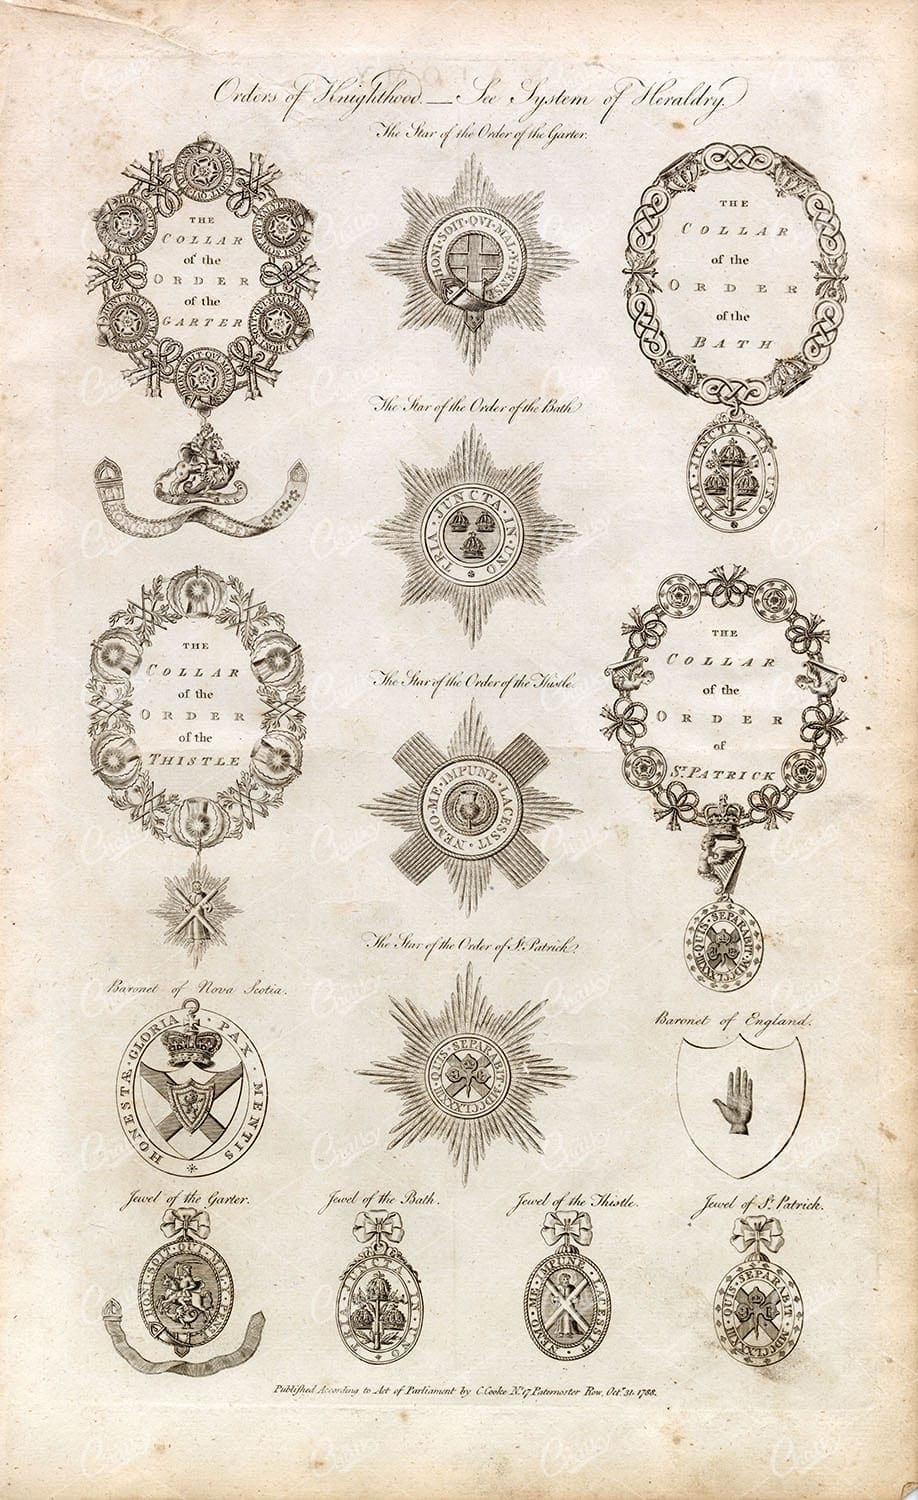 Orders of Knighthood.— See System of Heraldry.
The Star of the Order of the Garter.
THE
COLLAR
of the
ORDER
of the
GARTER
HONI·SOIT·QUI·MAL·Y·PENSE
THE
COLLAR
of the
ORDER
of the
BATH
TRIA·JUNCTA·IN·UNO
The Star of the Order of the Bath
TRIA·JUNCTA·IN·UNO
THE
COLLAR
of the
ORDER
of the
THISTLE
The Star of the Order of the Thistle.
NEMO·ME·IMPUNE·LACESSIT
THE
COLLAR
of the
ORDER
of
St. PATRICK
QUIS·SEPARABIT·MDCCLXXXIII
The Star of the Order of St. Patrick.
QUIS·SEPARABIT·MDCCLXXXIII
Baronet of Nova Scotia.
HONESTÆ·GLORIA·PAX·MENTIS
Baronet of England.
Jewel of the Garter.
HONI·SOIT·QUI·MAL·Y·PENSE
Jewel of the Bath.
TRIA JUNCTA IN UNO
Jewel of the Thistle.
NEMO·ME·IMPUNE·LACESSIT
Jewel of St. Patrick.
QUIS·SEPARABIT·MDCCLXXXIII
Published According to Act of Parliament by C. Cooke No. 17 Paternoster Row, Octr. 31, 1788.